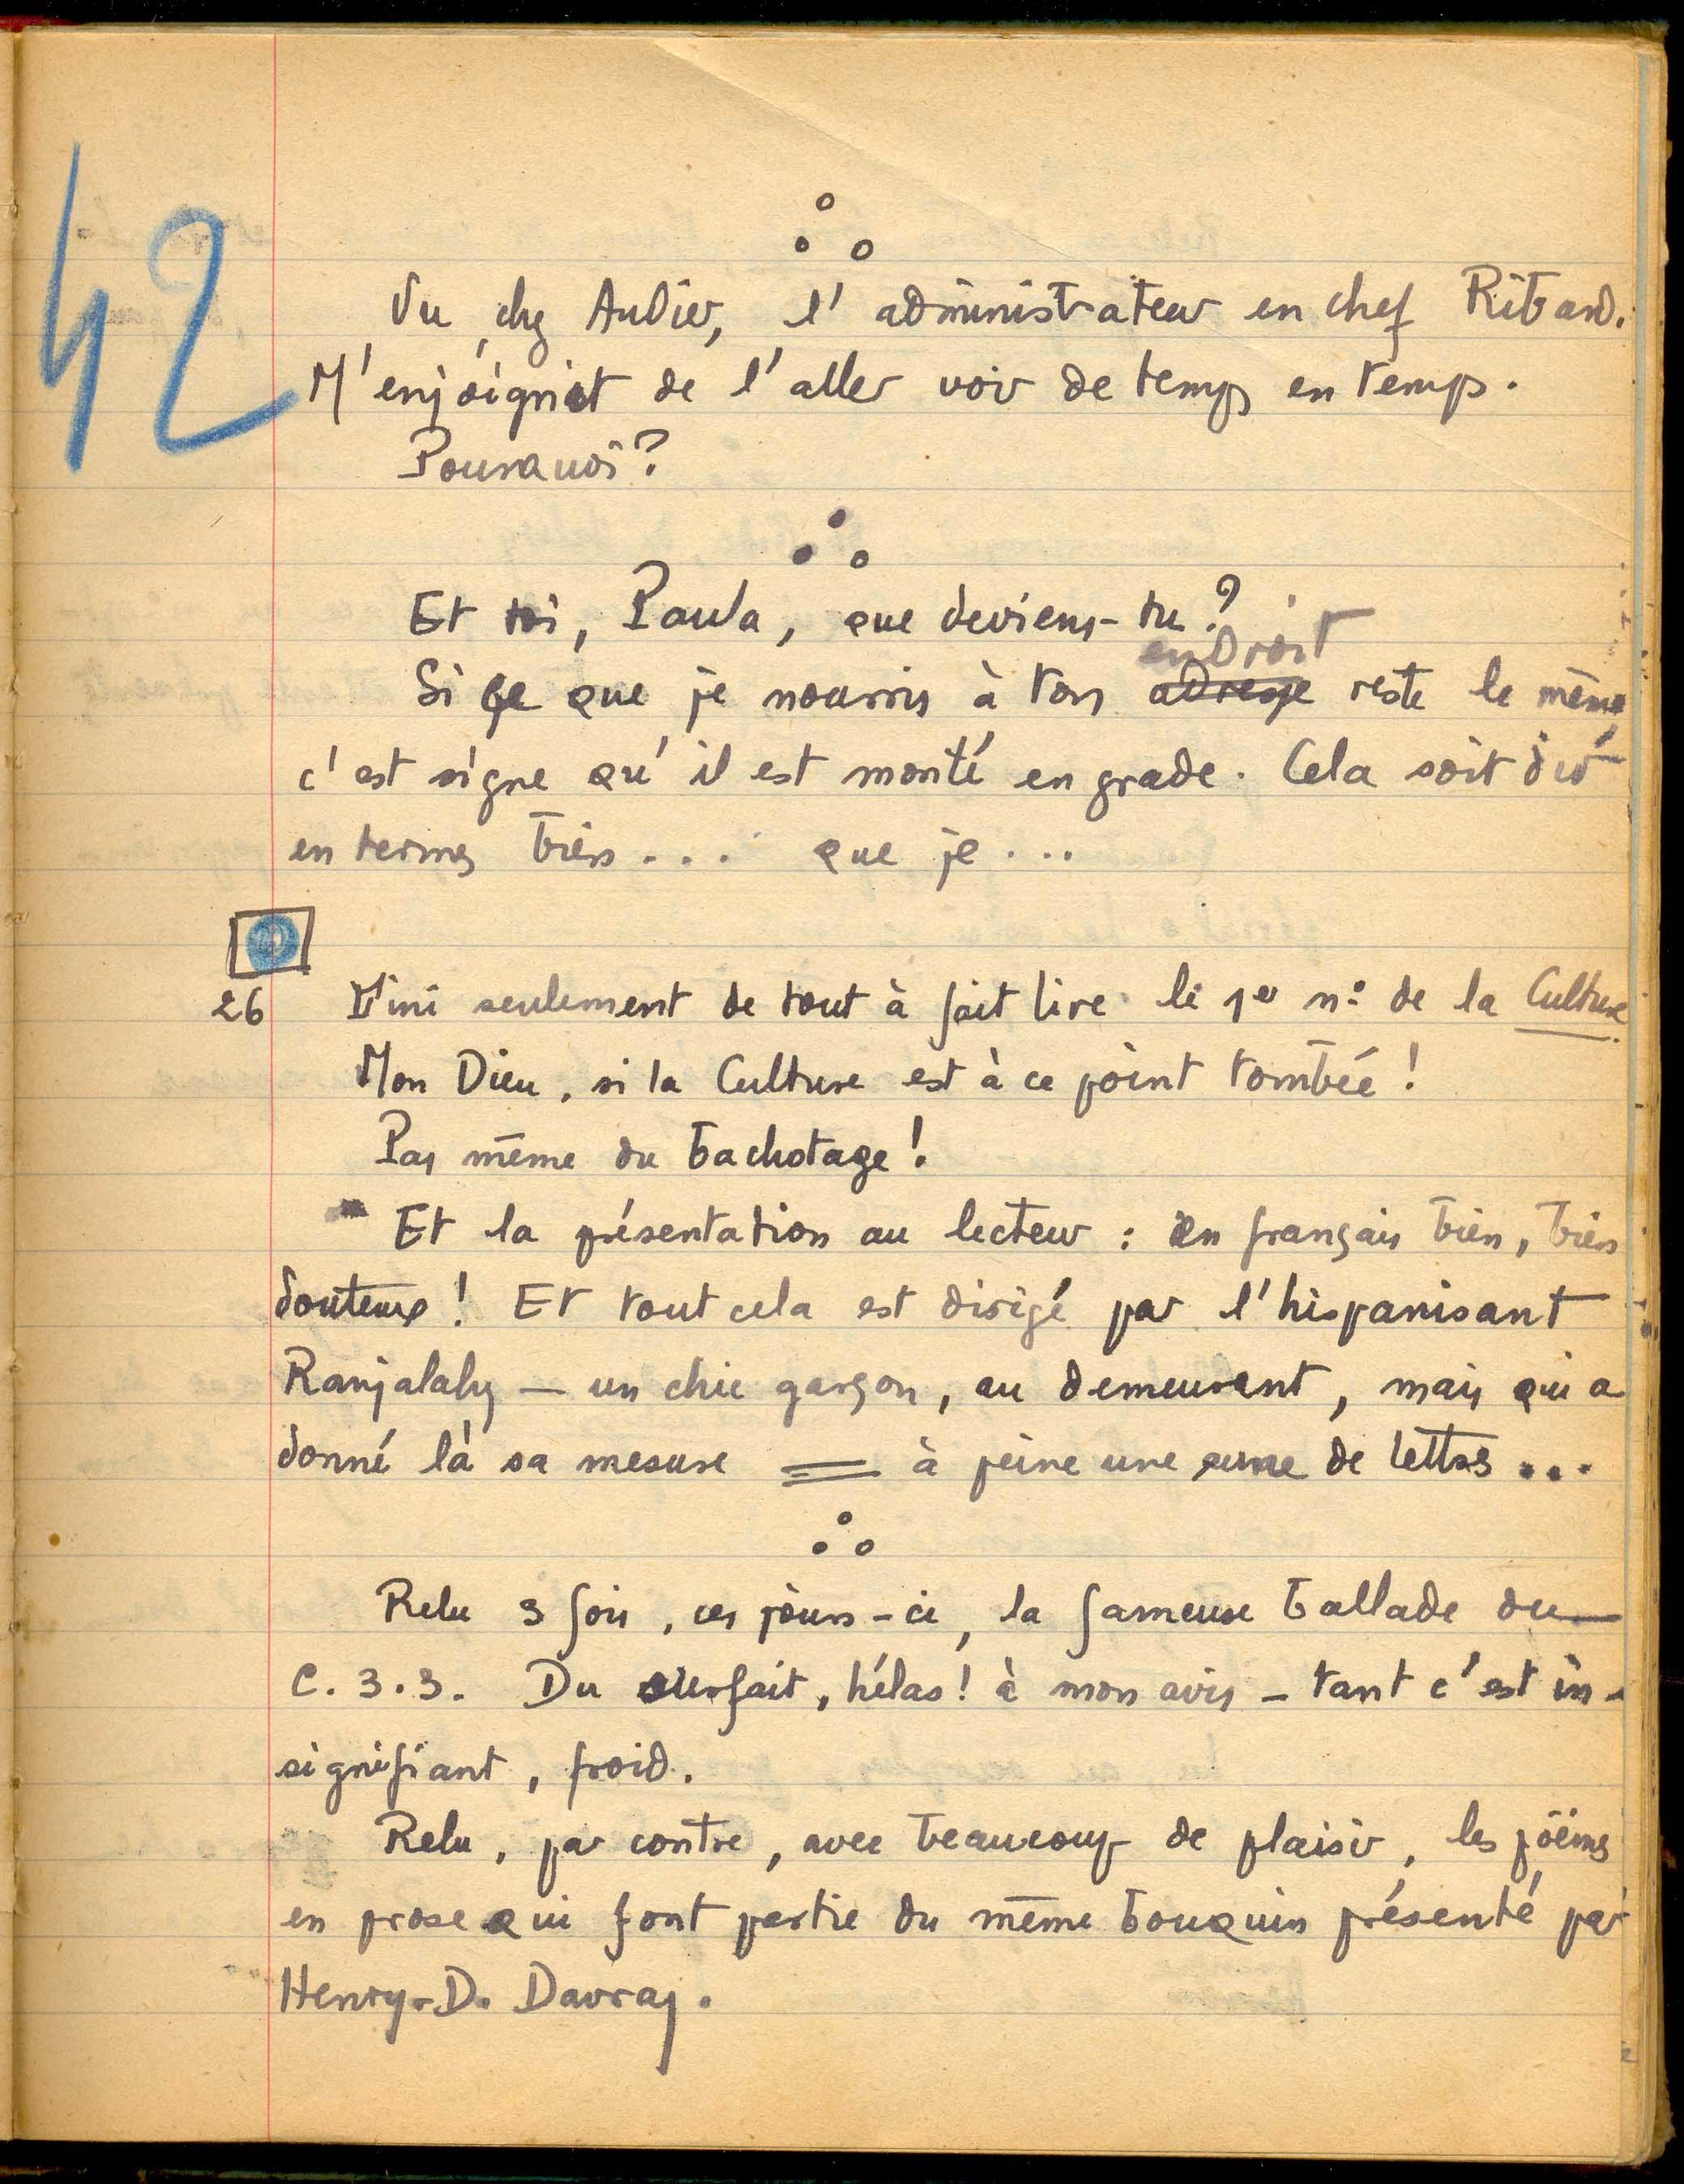 42
Vu, chez Audier, l'administrateur en chef Riband.
M'enjoignit de l'aller voir de temps en temps.
Pourquoi?
Et toi, Paula, que deviens-tu?
endroit
Si ce que je nourris à ton adresse reste le même,
c'est signe qu'il est monté en grade. Cela soit dit
en termes bien... que je...
26 Fini seulement de tout à fait lire le 1er n° de la Culture.
Mon Dieu, si la Culture est à ce point tombée!
Pas même du bachotage!
Et la présentation au lecteur: en français bien, bien
douteux! Et tout cela est dirigé par l'hispanisant
Ranjalahy — un chic garçon, au demeurant, mais qui a
donné là sa mesure = à peine une aune de lettres...
Relu 3 fois, ces jours-ci, la fameuse ballade du
C.3.3. Du surfait, hélas! à mon avis - tant c'est in-
signifiant, froid.
Relu, par contre, avec beaucoup de plaisir, les poèmes
en prose qui font partie du même bouquin présenté par
Henry-D. Davray.